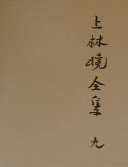 上林暁全集 九